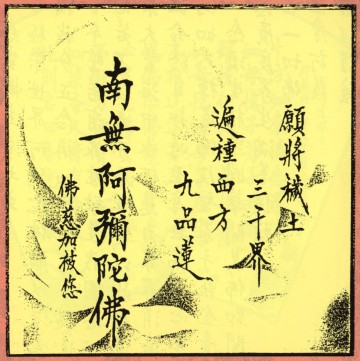 願將穢土
三千界
遍種西方
九品蓮
南無阿彌陀佛
佛慈加被您